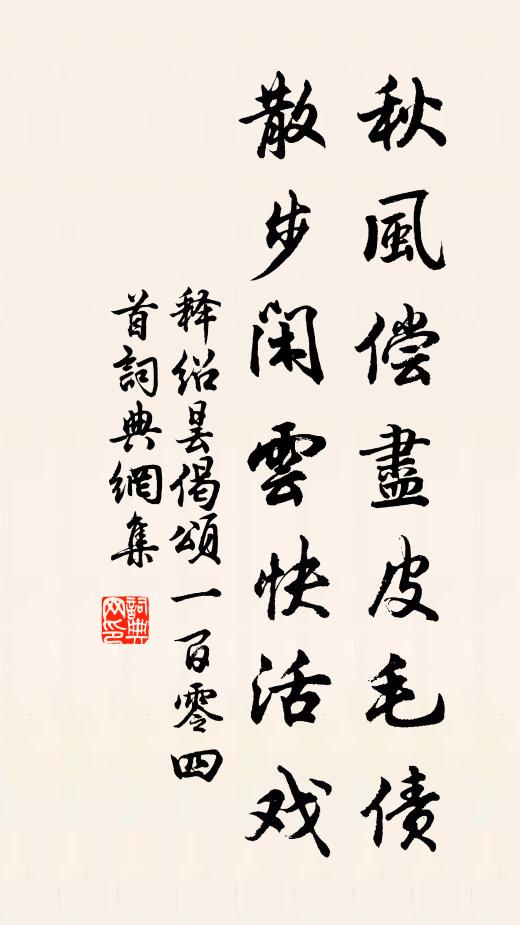 秋風偿盡皮毛债
散步閑雲快活戏
释绍昙偈頌一百零四
首詞典網集
詞典网印